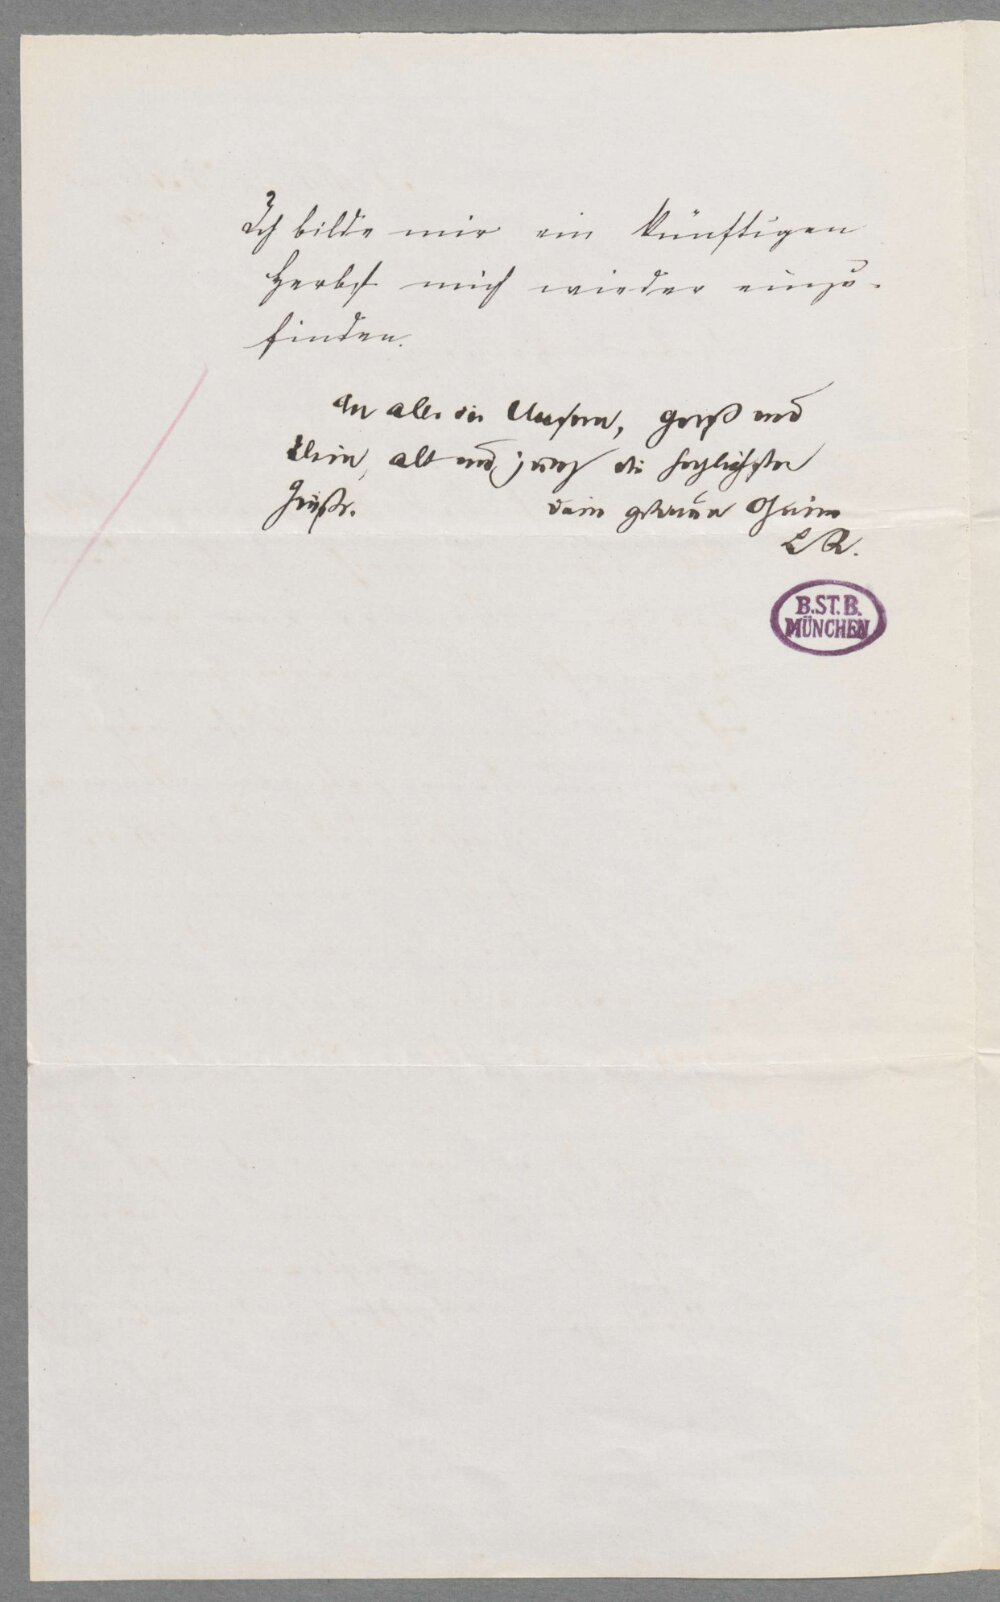 Ich bilde mir ein künftigen
Herbst mich wieder einzu-
finden.
An alle die Unsern, groß und
klein, alt und jung die herzlichsten
Grüße. Dein getreuer Oheim
LR.
B.ST.B.
MÜNCHEN